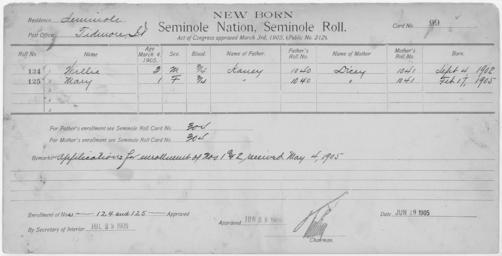 NEW BORN
Residence Seminole
Seminole Nation, Seminole Roll.
Card No. 99
Post Office
Act of Congress approved March 3rd, 1905. (Public No. 212).
Roll No.
Name
Age March 4, 1905.
Sex.
Blood.
Name of Father.
Father's Roll No.
Name of Mother
Mother's Roll No.
Born.
124 Willie 2 M Kaney 1040 Dicey 1041 Sept 4, 1902
125 Mary 1 F " 1040 " 1041 Feb 17, 1905
For Father's enrollment see Seminole Roll Card No. 304
For Mother's enrollment see Seminole Roll Card No. 304
Remarks Applications for enrollment of Nos 1 & 2, received May 4, 1905
Enrollment of Nos 124 and 125 Approved
Approved 1905
Date JUN 19 1905
By Secretary of Interior 1905
Chairman.